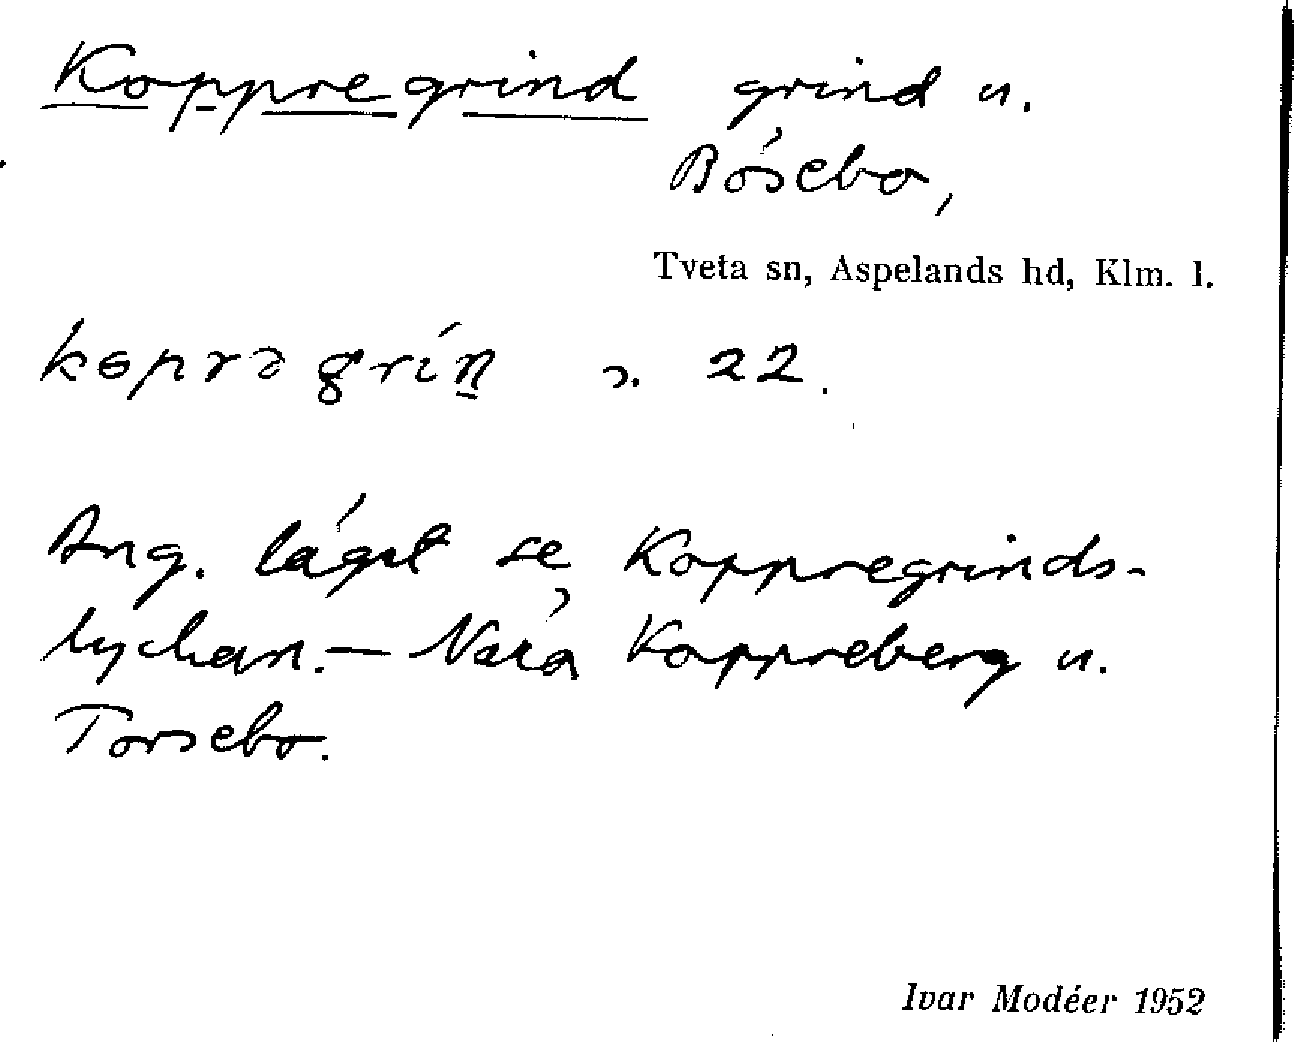 Koppregrind grind u.
Bösebo,
Tveta sn, Aspelands hd, Klm. l.
kɵprəgrín 22.
Ang. läget se Koppregrinds-
lyckan. — Nära Koppreberg u.
Torsebo.
Ivar Modéer 1952